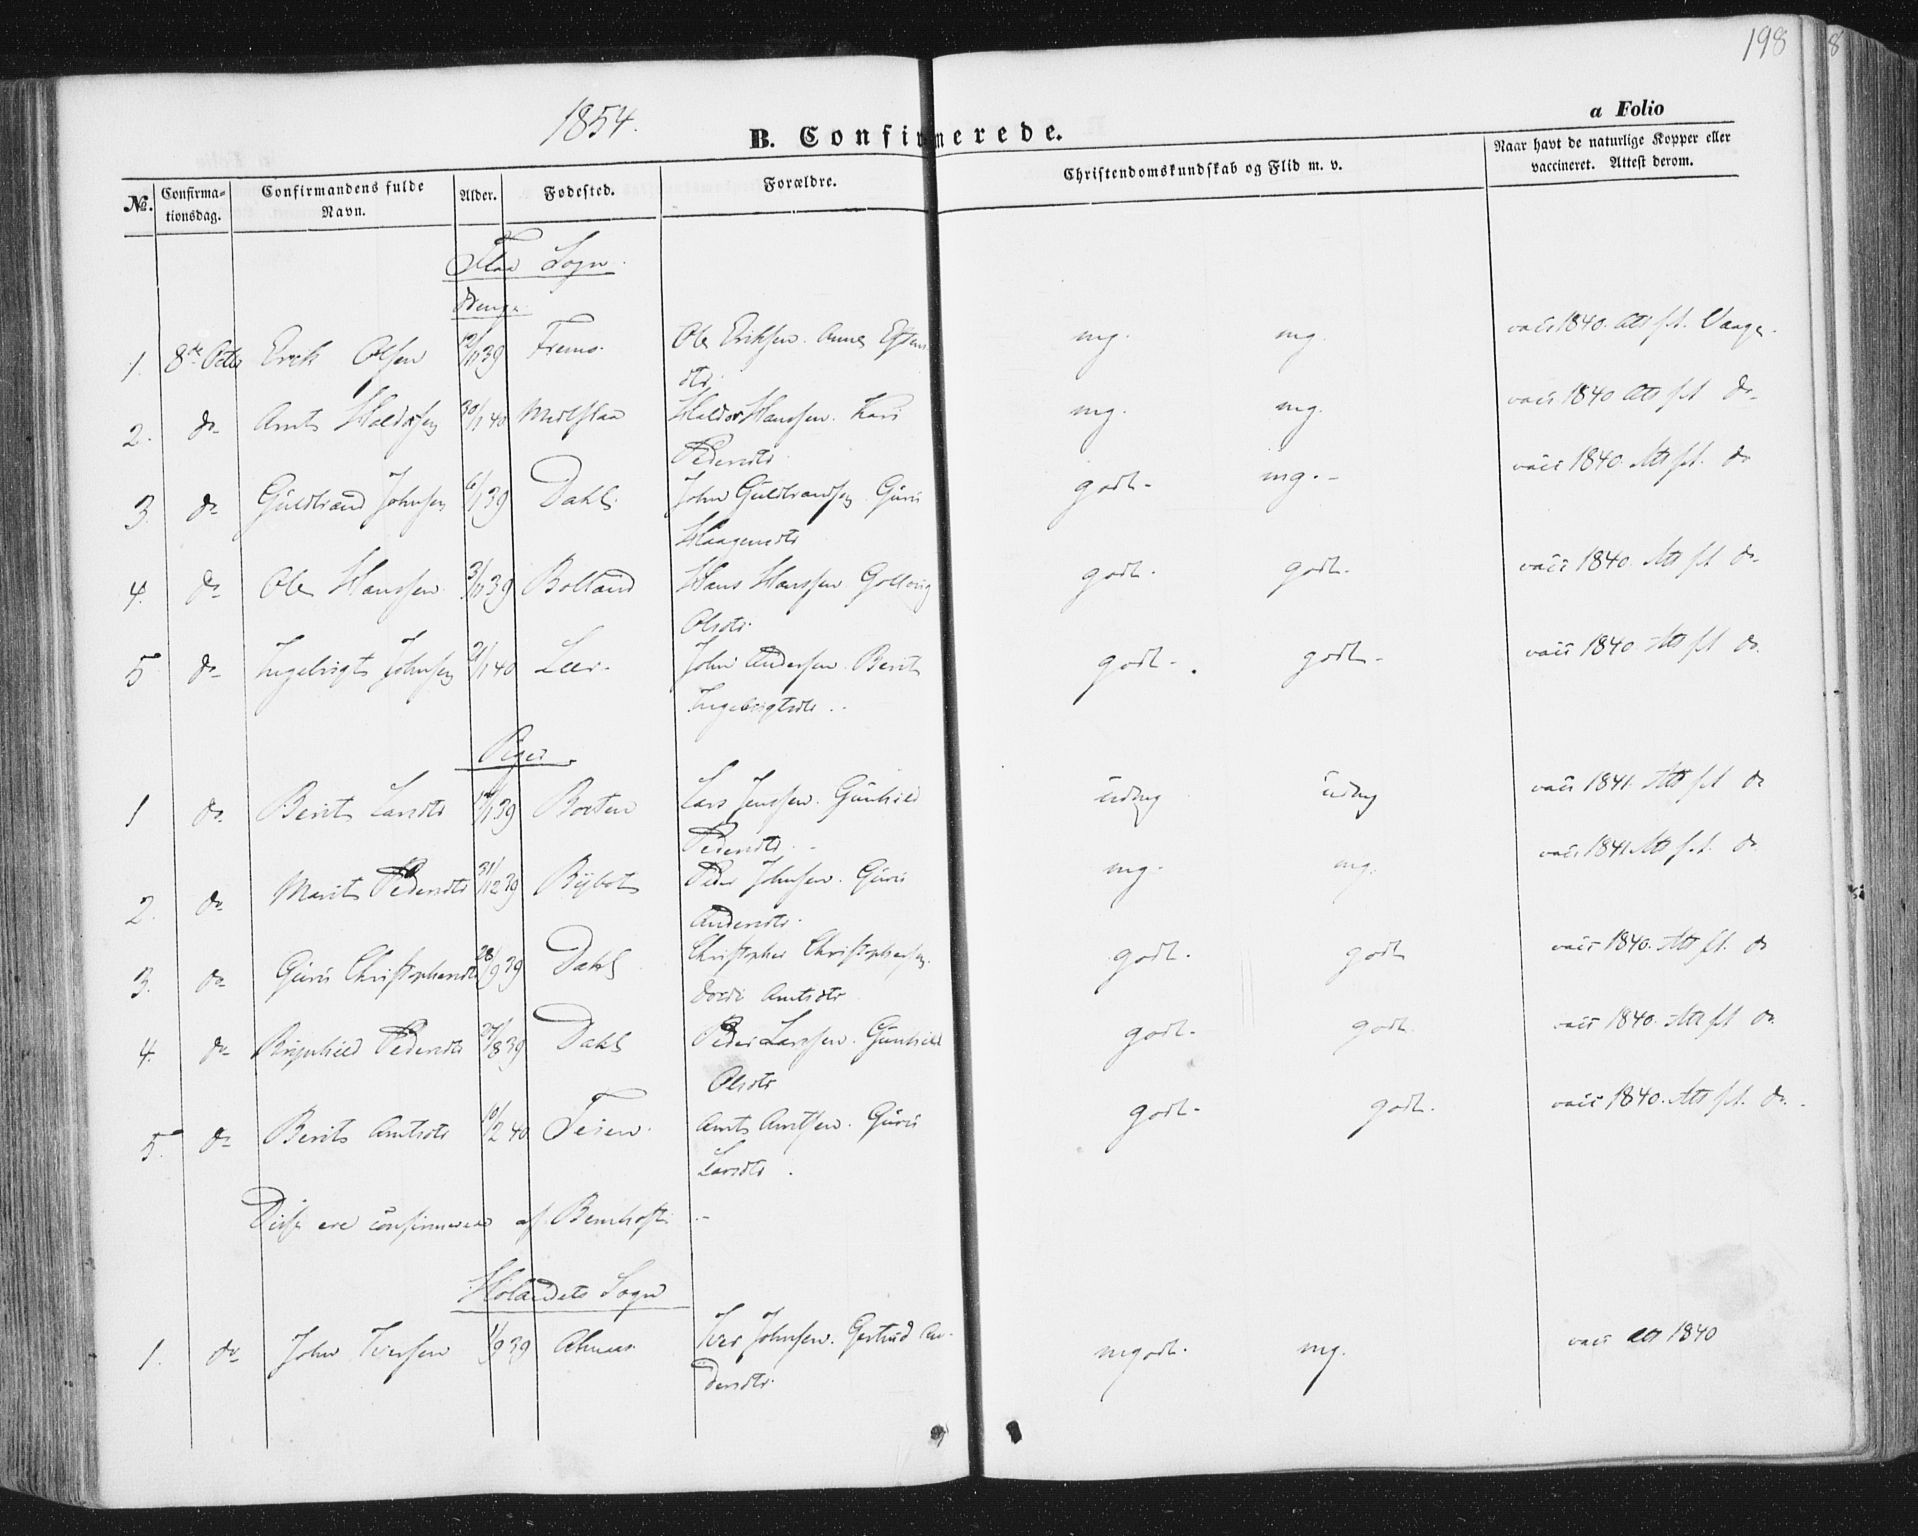 198
8
1854.
B. Confirmerede.
a Folio
No. Confirma-tionsdag. Confirmandens fulde Navn. Alder. Fødested. Forældre. Christendomskundskab og Flid m. v. Naar havt de naturlige Kopper eller vaccineret. Attest derom.
Flaa Sogn.
Drenge
1. 8de Octbr Erik Olsen 12/11 39 Fremo. Ole Eriksen. Anne Estens mg. mg. vacc 1840. Att fal. Vaage.
dtr.
2. do Arnt Haldorsen 30/1 40 Medflaa Haldor Hanssen. Kari mg. mg. vacc 1840 Att fal do
Pedersdtr.
3. do Guldbrand Johnsen 6/1 39 Dahl. John Guldbrandsen Guru godt. mg. vacc 1840. Att fal. do
Haagensdtr
4. do Ole Hanssen 3/10 39 Bolland Hans Hanssen Gollaug godt. godt. vacc 1840. Att fal do
Olsdtr.
5 do Ingebrigt Johnsen 2/1 40 Leer. John Andersen. Berit godt. godt. vacc 1840. Att fal do.
Ingebrigtsdtr.
Piger.
1 do Berit Larsdtr 39 Borten Lars Jenssen. Gunhild udmg udmg vacc 1841. Att fal do
Pedersdtr.
2. do Marit Pedersdtr 31/12 39 Bybot Peder Johnsen. Guru mg. mg. vacc 1841 Att fal. do
Andersdtr.
3. do Guru Christophersdtr 28/9 39 Dahl Christopher Christophersen. godt. godt vacc 1840. Att fal. do
Dordi Arntsdtr
4. do Brynhild Pedersdtr 27/8 39 Dahl Peder Larssen. Gunhild godt. godt. vacc 1840. Att fal do.
Olsdtr
5. do Berit Arntsdtr 10/2 40 Teien. Arnt Arntsen. Guru godt. godt. vacc 1840. Att fal. do.
Larsdtr.
Disse ere confirmerede af Bernhoft.
Hølandets Sogn
1. do John Iversen 1/9 39 Ahnaas Iver Johnsen. Gertrud An- mgodt. mg. vacc att 1840
dersdtr.